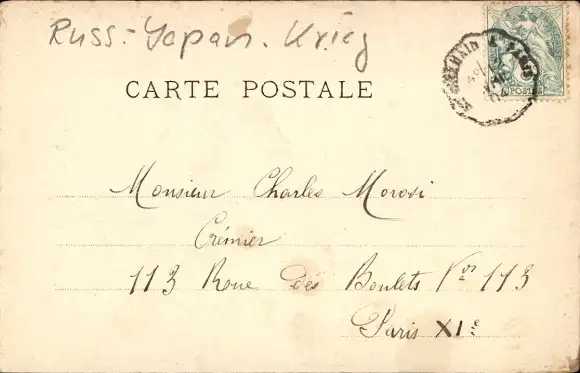 Russ.-Japan. Krieg
CARTE POSTALE
POSTES
Monsieur Charles Morosi
Crémier
113 Roue des Boulets Nos 113
Paris XIe